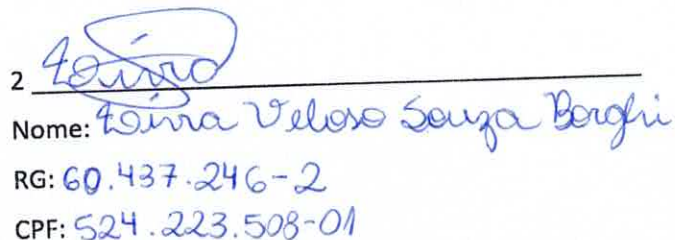 2
Nome: Veloso Souza Borghi
RG: 60.437.246-2
CPF: 524.223.508-01